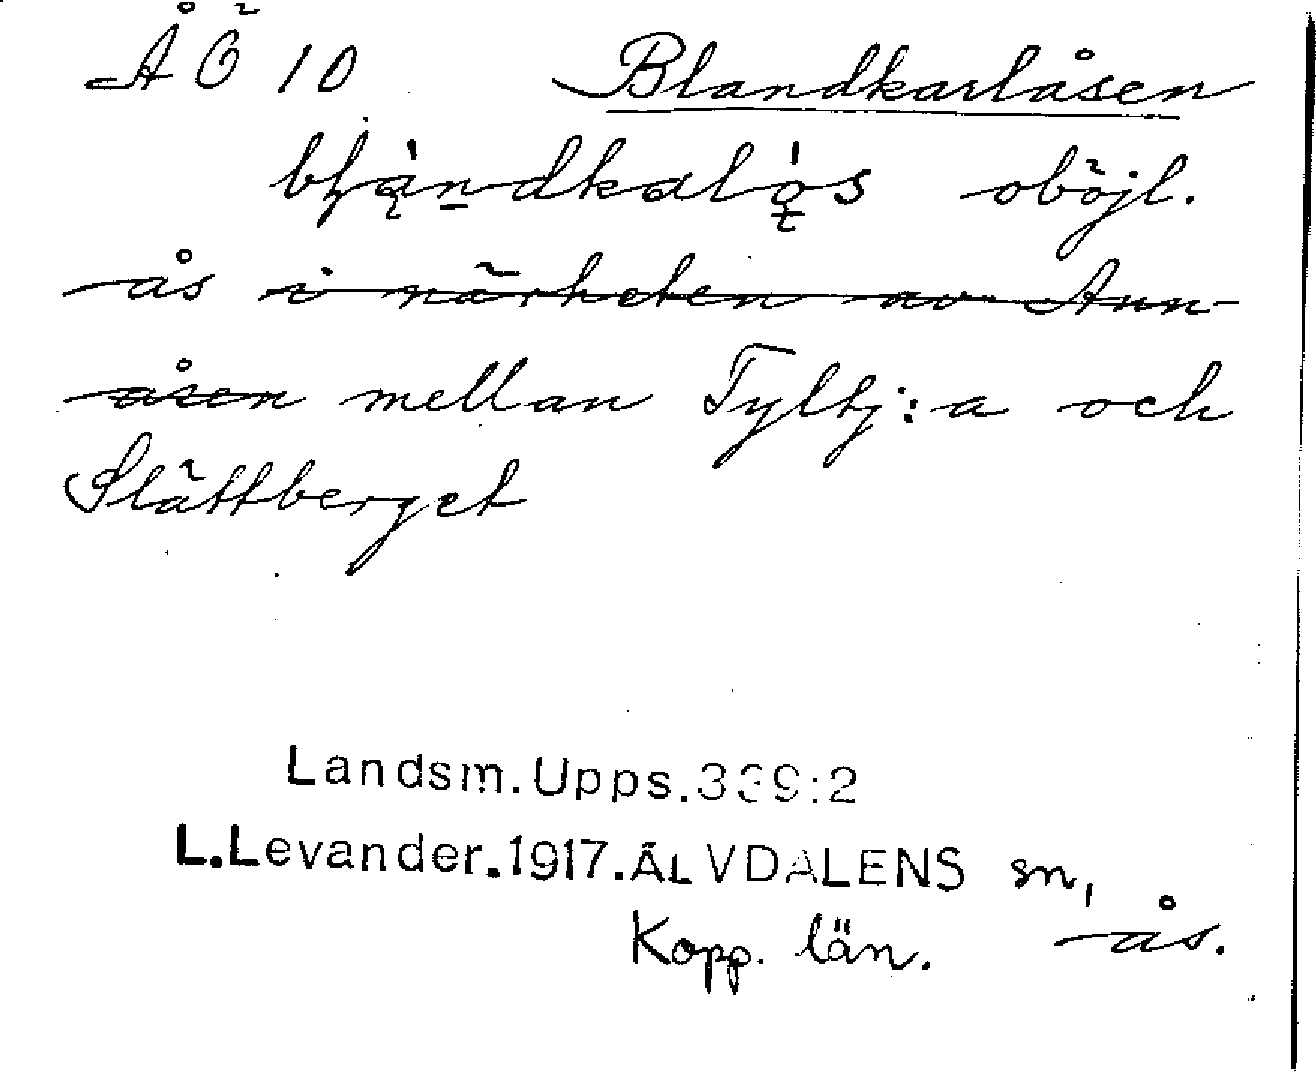 ÅÖ 10 Blandkarlåsen
bḷą̀n̲dkalǫ̀s oböjl.
ås ~~i närheten av Ann-~~
~~åsen~~ mellan Tyltj:a och
Slättberget
Landsm.Upps.339:2
L.Levander.1917.ÄLVDALENS sn,
Kopp. län. ås.